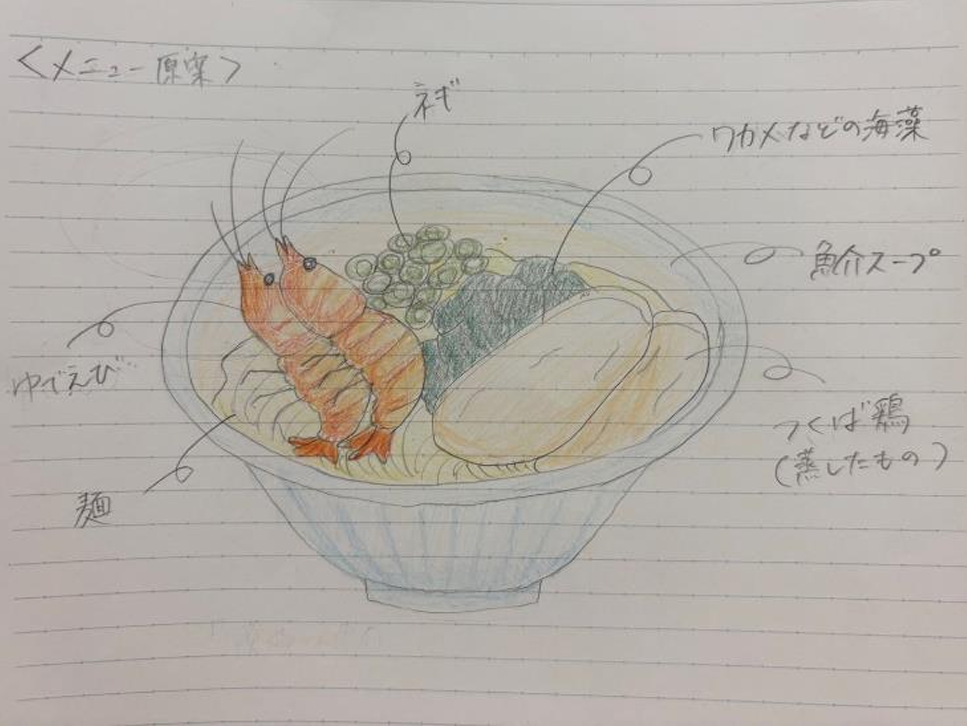 <メニュー原案>
ネギ
ワカメなどの海藻
魚介スープ
ゆでえび
つくば鶏
(蒸したもの)
麺